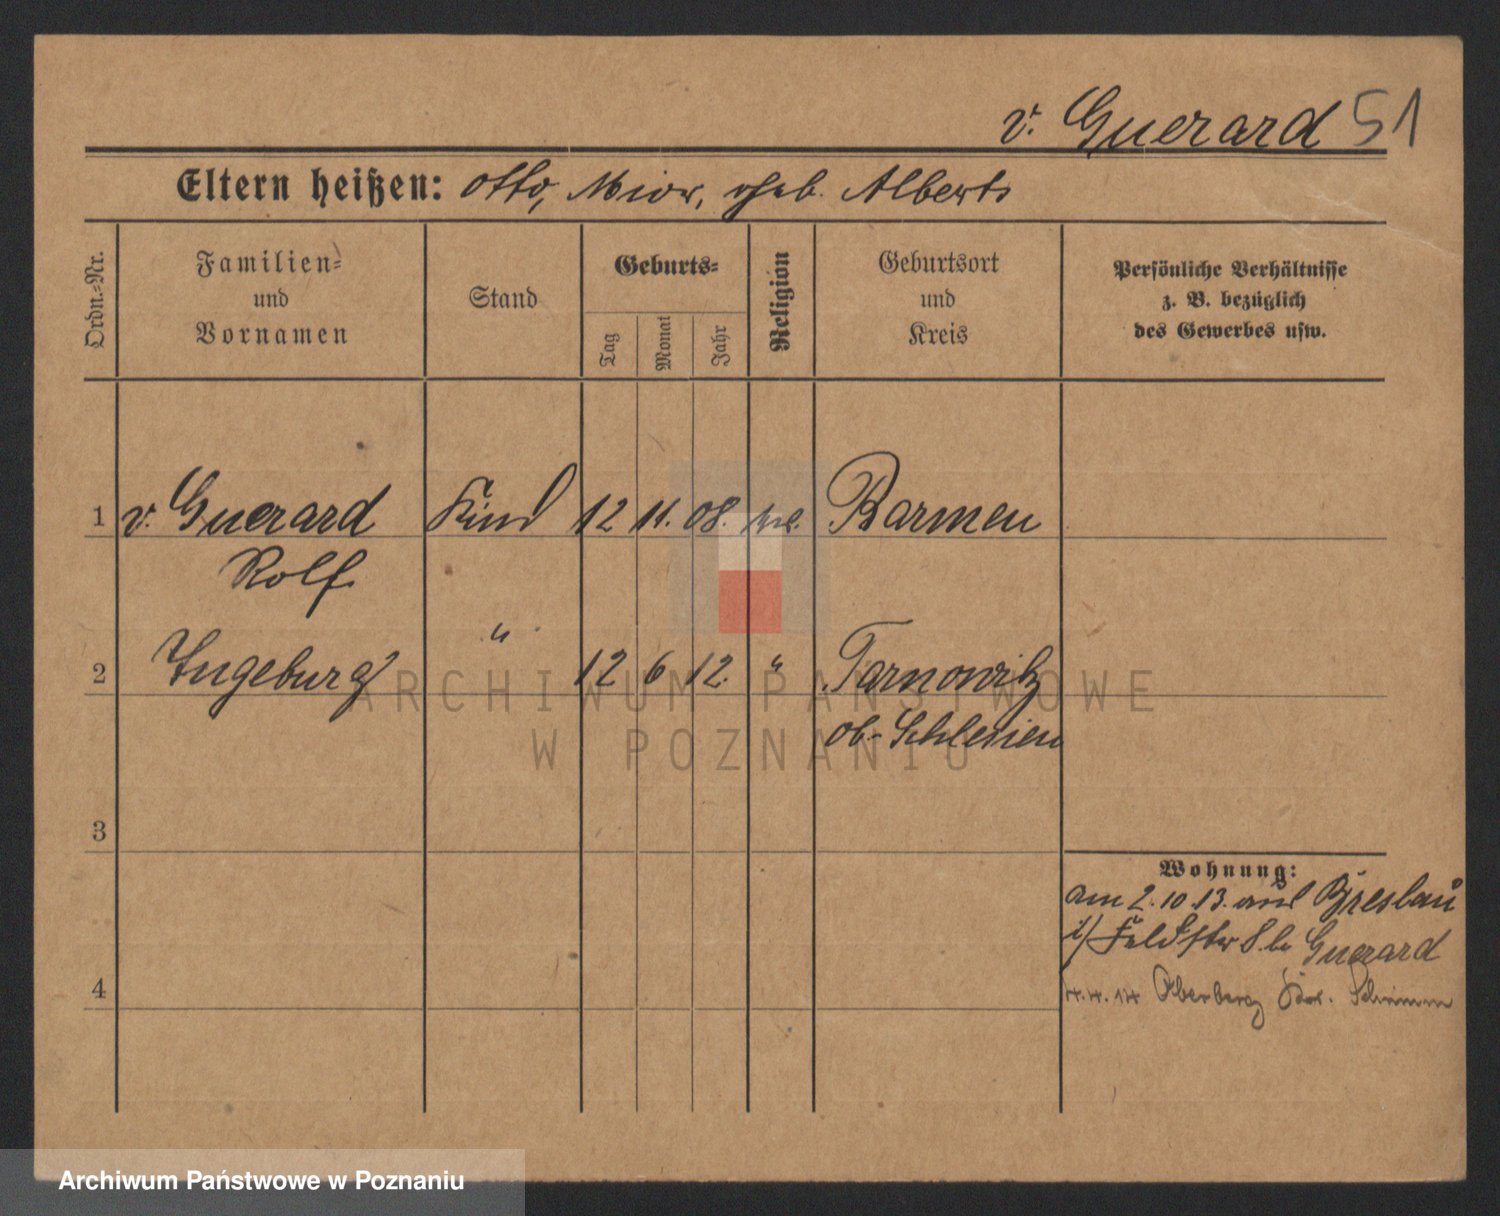 v. Guerard 51
Eltern heißen: Otto, geb. Alberts
Ordn.-Nr.
Familien-
und
Vornamen
Stand
Geburts-
Tag
Monat
Jahr
Religion
Geburtsort
und
Kreis
Persönliche Verhältnisse
z. B. bezüglich
des Gewerbes usw.
1 v. Guerard Kind 12 11. 08. Barmen
Rolf
2 Ingeburg " 12 6 12. " Tarnowitz
Ob-Schlesien
3
Wohnung:
am 2.10.13. aus Breslau
Guerard
4
4.4.14 Oberberg Schrimm
ARCHIWUM PAŃSTWOWE
W POZNANIU
Archiwum Państwowe w Poznaniu